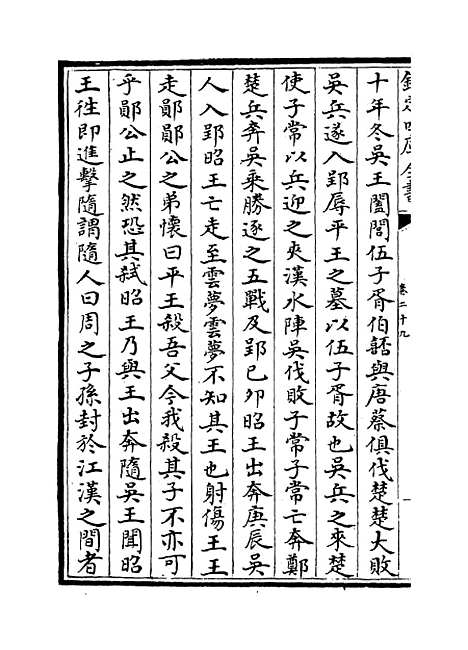 欽定四庫全書
卷二十九
十年冬吳王闔閭伍子胥伯嚭與唐蔡俱伐楚楚大敗
吳兵遂入郢辱平王之墓以伍子胥故也吳兵之來楚
使子常以兵迎之夾漢水陣吳伐敗子常子常亡奔鄭
楚兵奔吳乘勝逐之五戰及郢已夘昭王出奔庚辰吳
人入郢昭王亡走至雲夢雲夢不知其王也射傷王王
走鄖鄖公之弟懷曰平王殺吾父今我殺其子不亦可
乎鄖公止之然恐其弑昭王乃與王出奔隨吳王聞昭
王徃即進擊隨謂隨人曰周之子孫封於江漢之間者